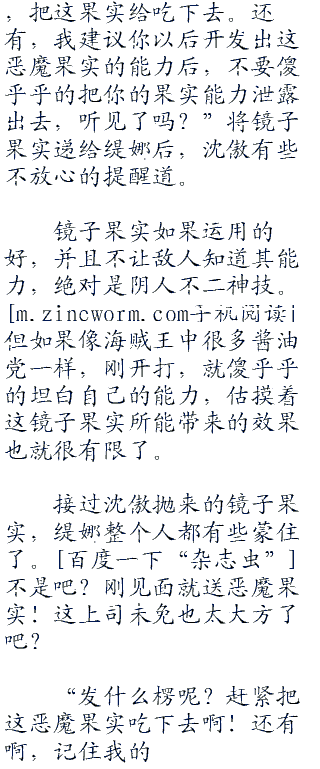 ，把这果实给吃下去。还
有，我建议你以后开发出这
恶魔果实的能力后，不要傻
乎乎的把你的果实能力泄露
出去，听见了吗？”将镜子
果实递给缇娜后，沈傲有些
不放心的提醒道。
镜子果实如果运用的
好，并且不让敌人知道其能
力，绝对是阴人不二神技。
[m.zineworm.com手机阅读]
但如果像海贼王中很多酱油
党一样，刚开打，就傻乎乎
的坦白自己的能力，估摸着
这镜子果实所能带来的效果
也就很有限了。
接过沈傲抛来的镜子果
实，缇娜整个人都有些蒙住
了。[百度一下“杂志虫”]
不是吧？刚见面就送恶魔果
实！这上司未免也太大方了
吧？
“发什么楞呢？赶紧把
这恶魔果实吃下去啊！还有
啊，记住我的